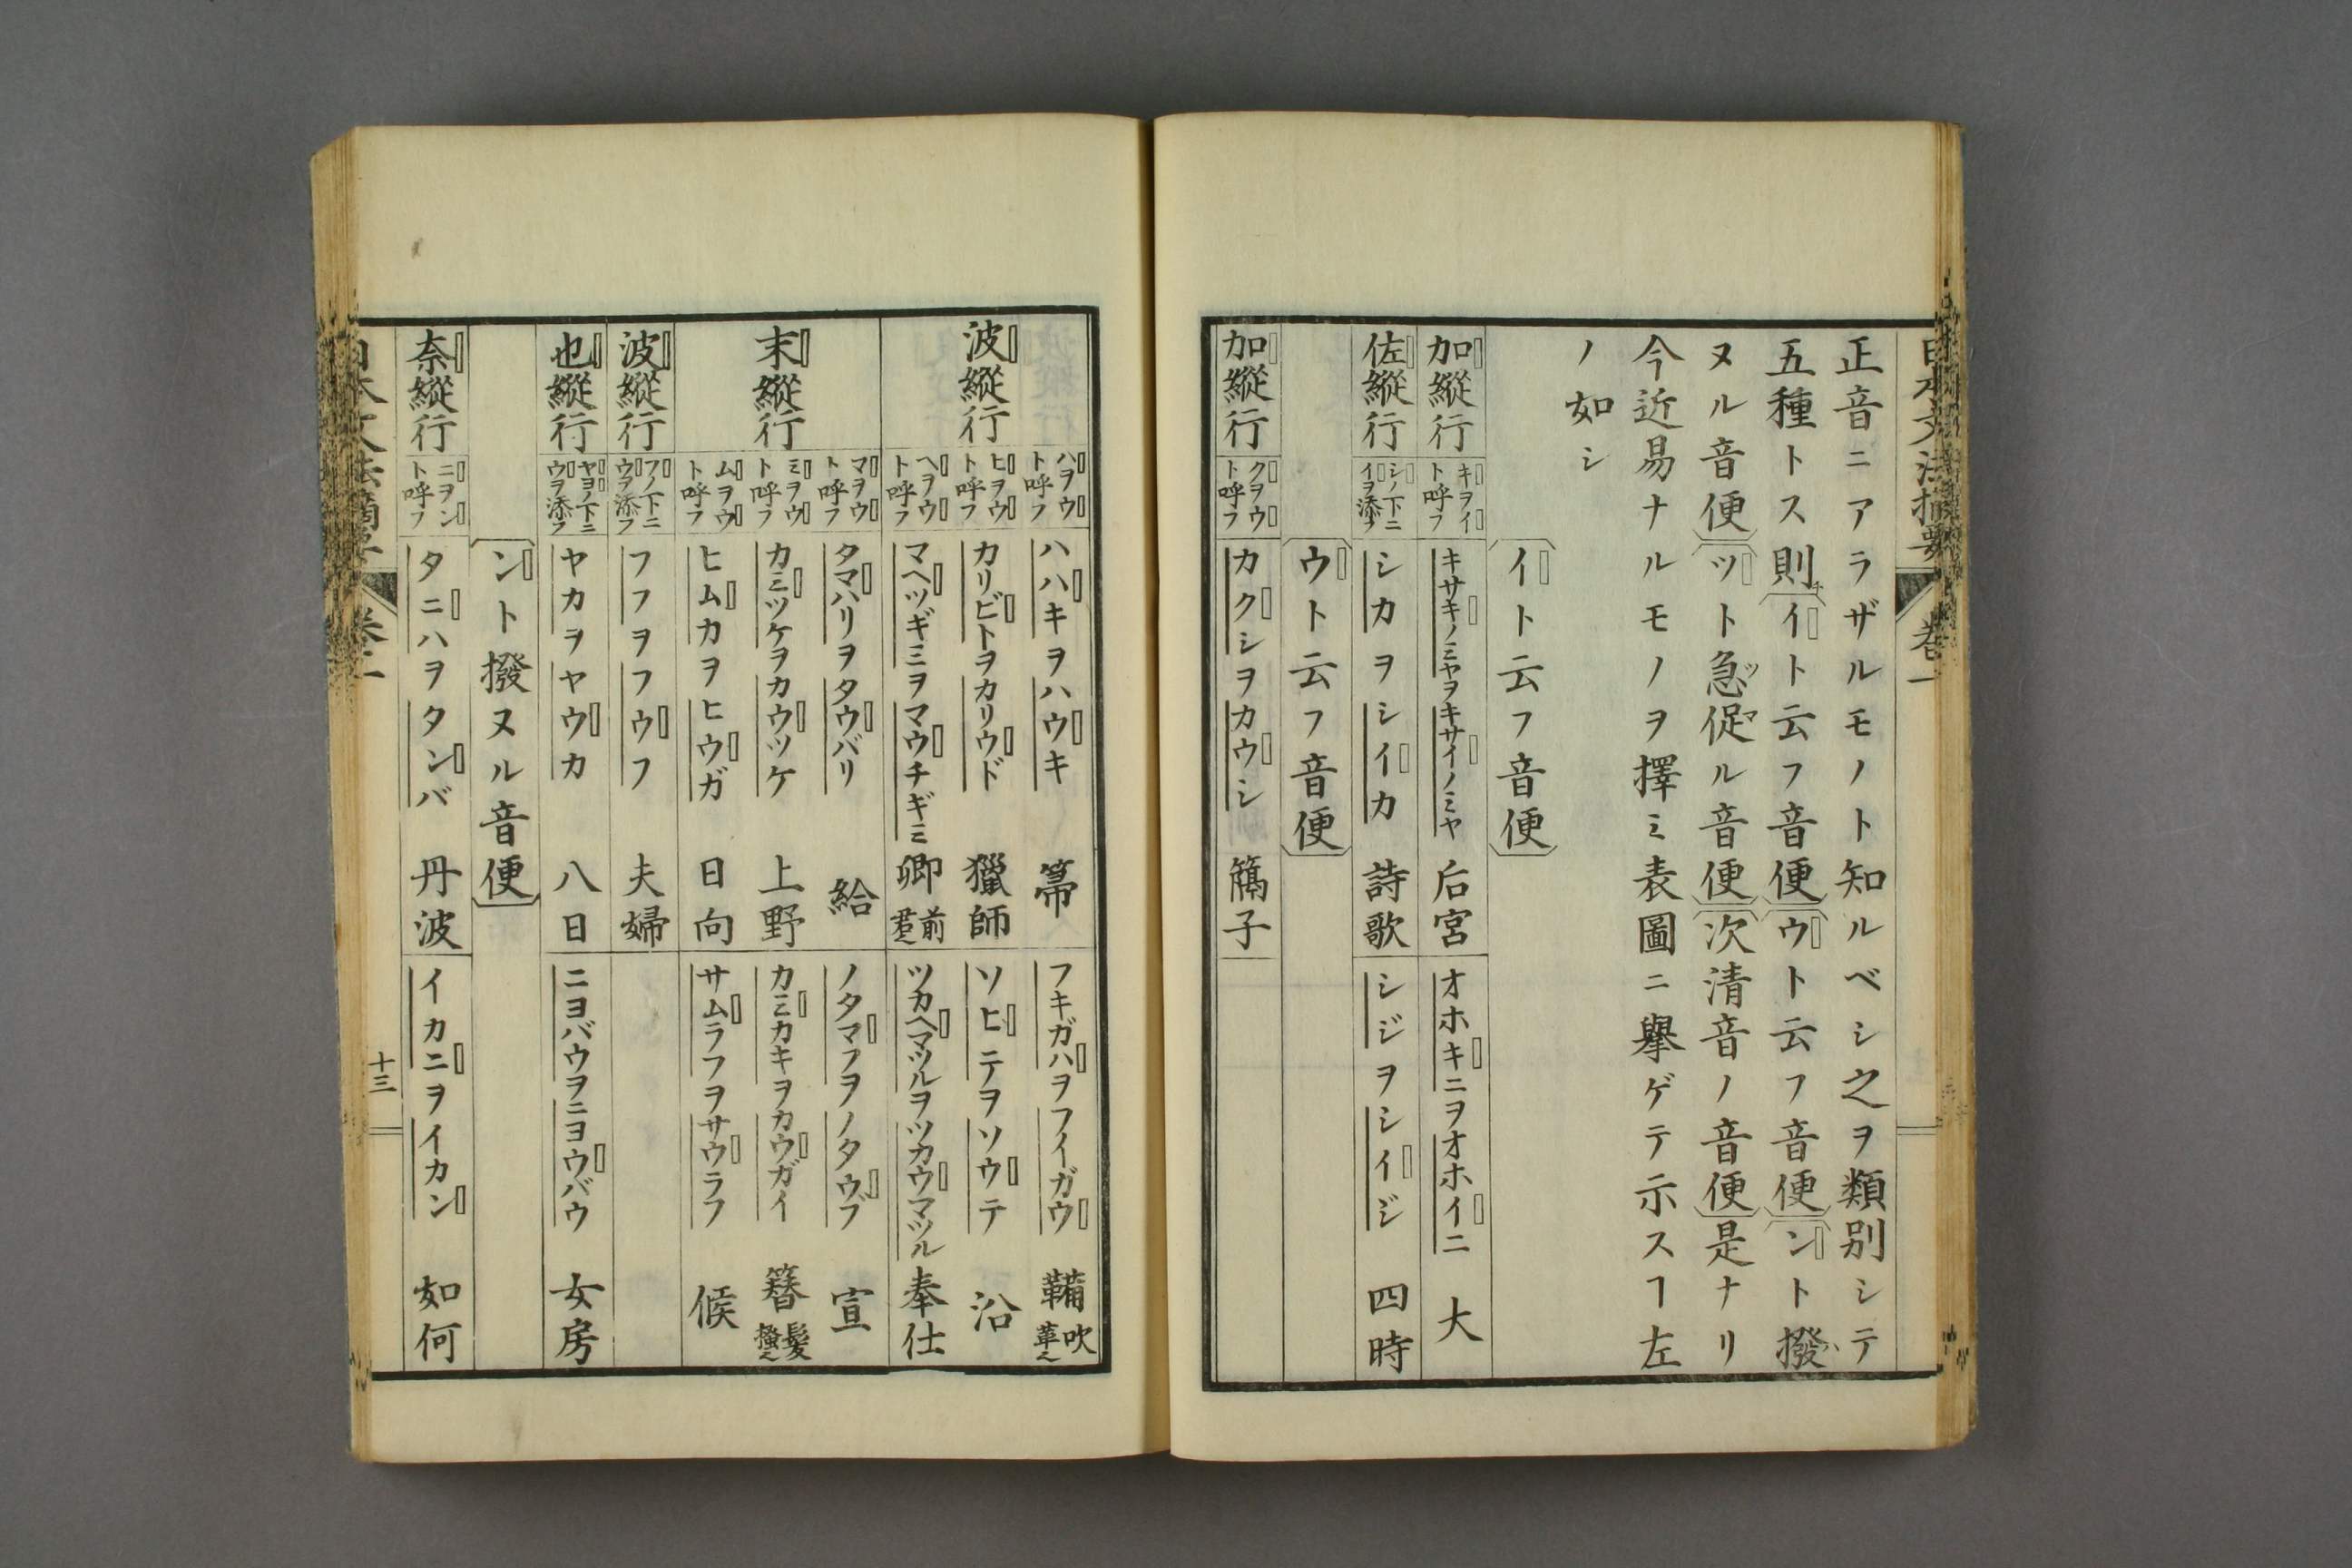 正音ニアラザルモノト知ルベシ之ヲ類別シテ
五種トス則イト云フ音便ウト云フ音便ント撥
ヌル音便ツト急促ル音便次清音ノ音便是ナリ
今近易ナルモノヲ擇ミ表圖ニ擧ゲテ示スヿ左
ノ如シ
イト云フ音便
加縱行 キヲイト呼フ キサキノミヤヲキサイノミヤ 后宮 オホキニヲオホイニ 大
佐縱行 シノ下ニイヲ添フ シカヲシイカ 詩歌 シジヲシイジ 四時
ウト云フ音便
加縱行 クヲウト呼フ カクシヲカウシ 䈑子
波縱行 ハヲウト呼フ ハハキヲハウキ 箒 フキガハヲフイガウ 鞴 吹革ヘ
ヒヲウト呼フ カリビトヲカリウド 獵師 ソヒテヲソウテ 沿
ヘヲウト呼フ マヘツギミヲマウチギミ 卿 前君ヘ ツカヘマツルヲツカウマツル 奉仕
末縱行 マヲウト呼フ タマハリヲタウバリ 給 ノタマフヲノタウブ 宣
ミヲウト呼フ カミツケヲカウツケ 上野 カミカキヲカウガイ 簪 髮搔ヘ
ムヲウト呼フ ヒムカヲヒウガ 日向 サムラフヲサウラフ 候
波縱行 フノ下ニウヲ添フ フフヲフウフ 夫婦
也縱行 ヤヨノ下ニウヲ添フ ヤカヲヤウカ 八日 ニヨバウヲニヨウバウ 女房
ント撥ヌル音便
奈縱行 ニヲント呼フ タニハヲタンバ 丹波 イカニヲイカン 如何
十三